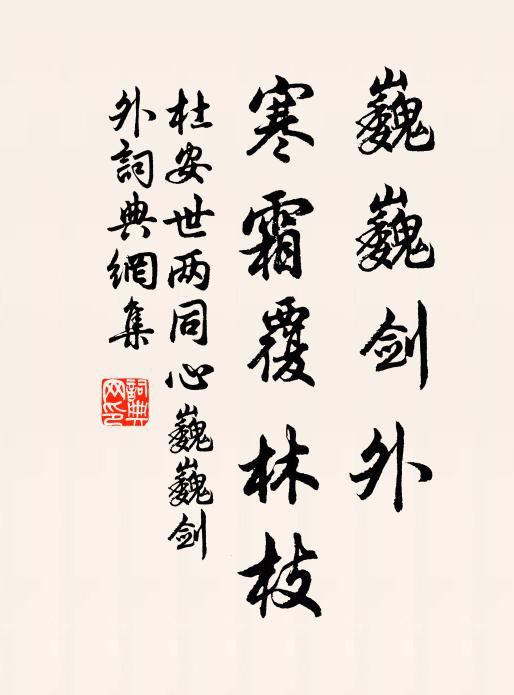 巍巍剑外
寒霜覆林枝
杜安世两同心巍巍剑
外詞典網集
詞典
网印